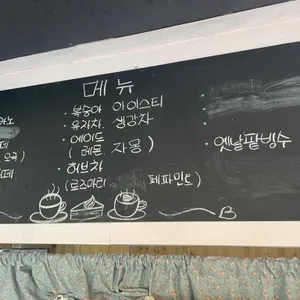 메뉴
· 복숭아 아이스티
· 유자차 생강차
· 에이드
( 레몬 자몽 )
· 허브차
( 로즈마리 페파민트 )
· 옛날팥빙수
B